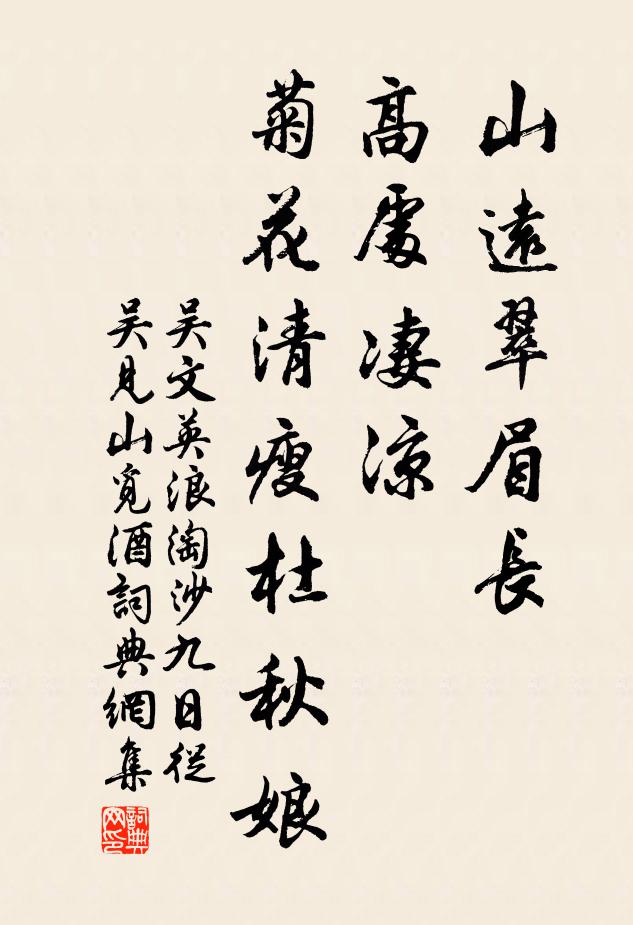 山遠翠眉長
高處凄涼
菊花清瘦杜秋娘
吴文英浪淘沙九日從
吴見山覓酒詞典網集
詞典网印